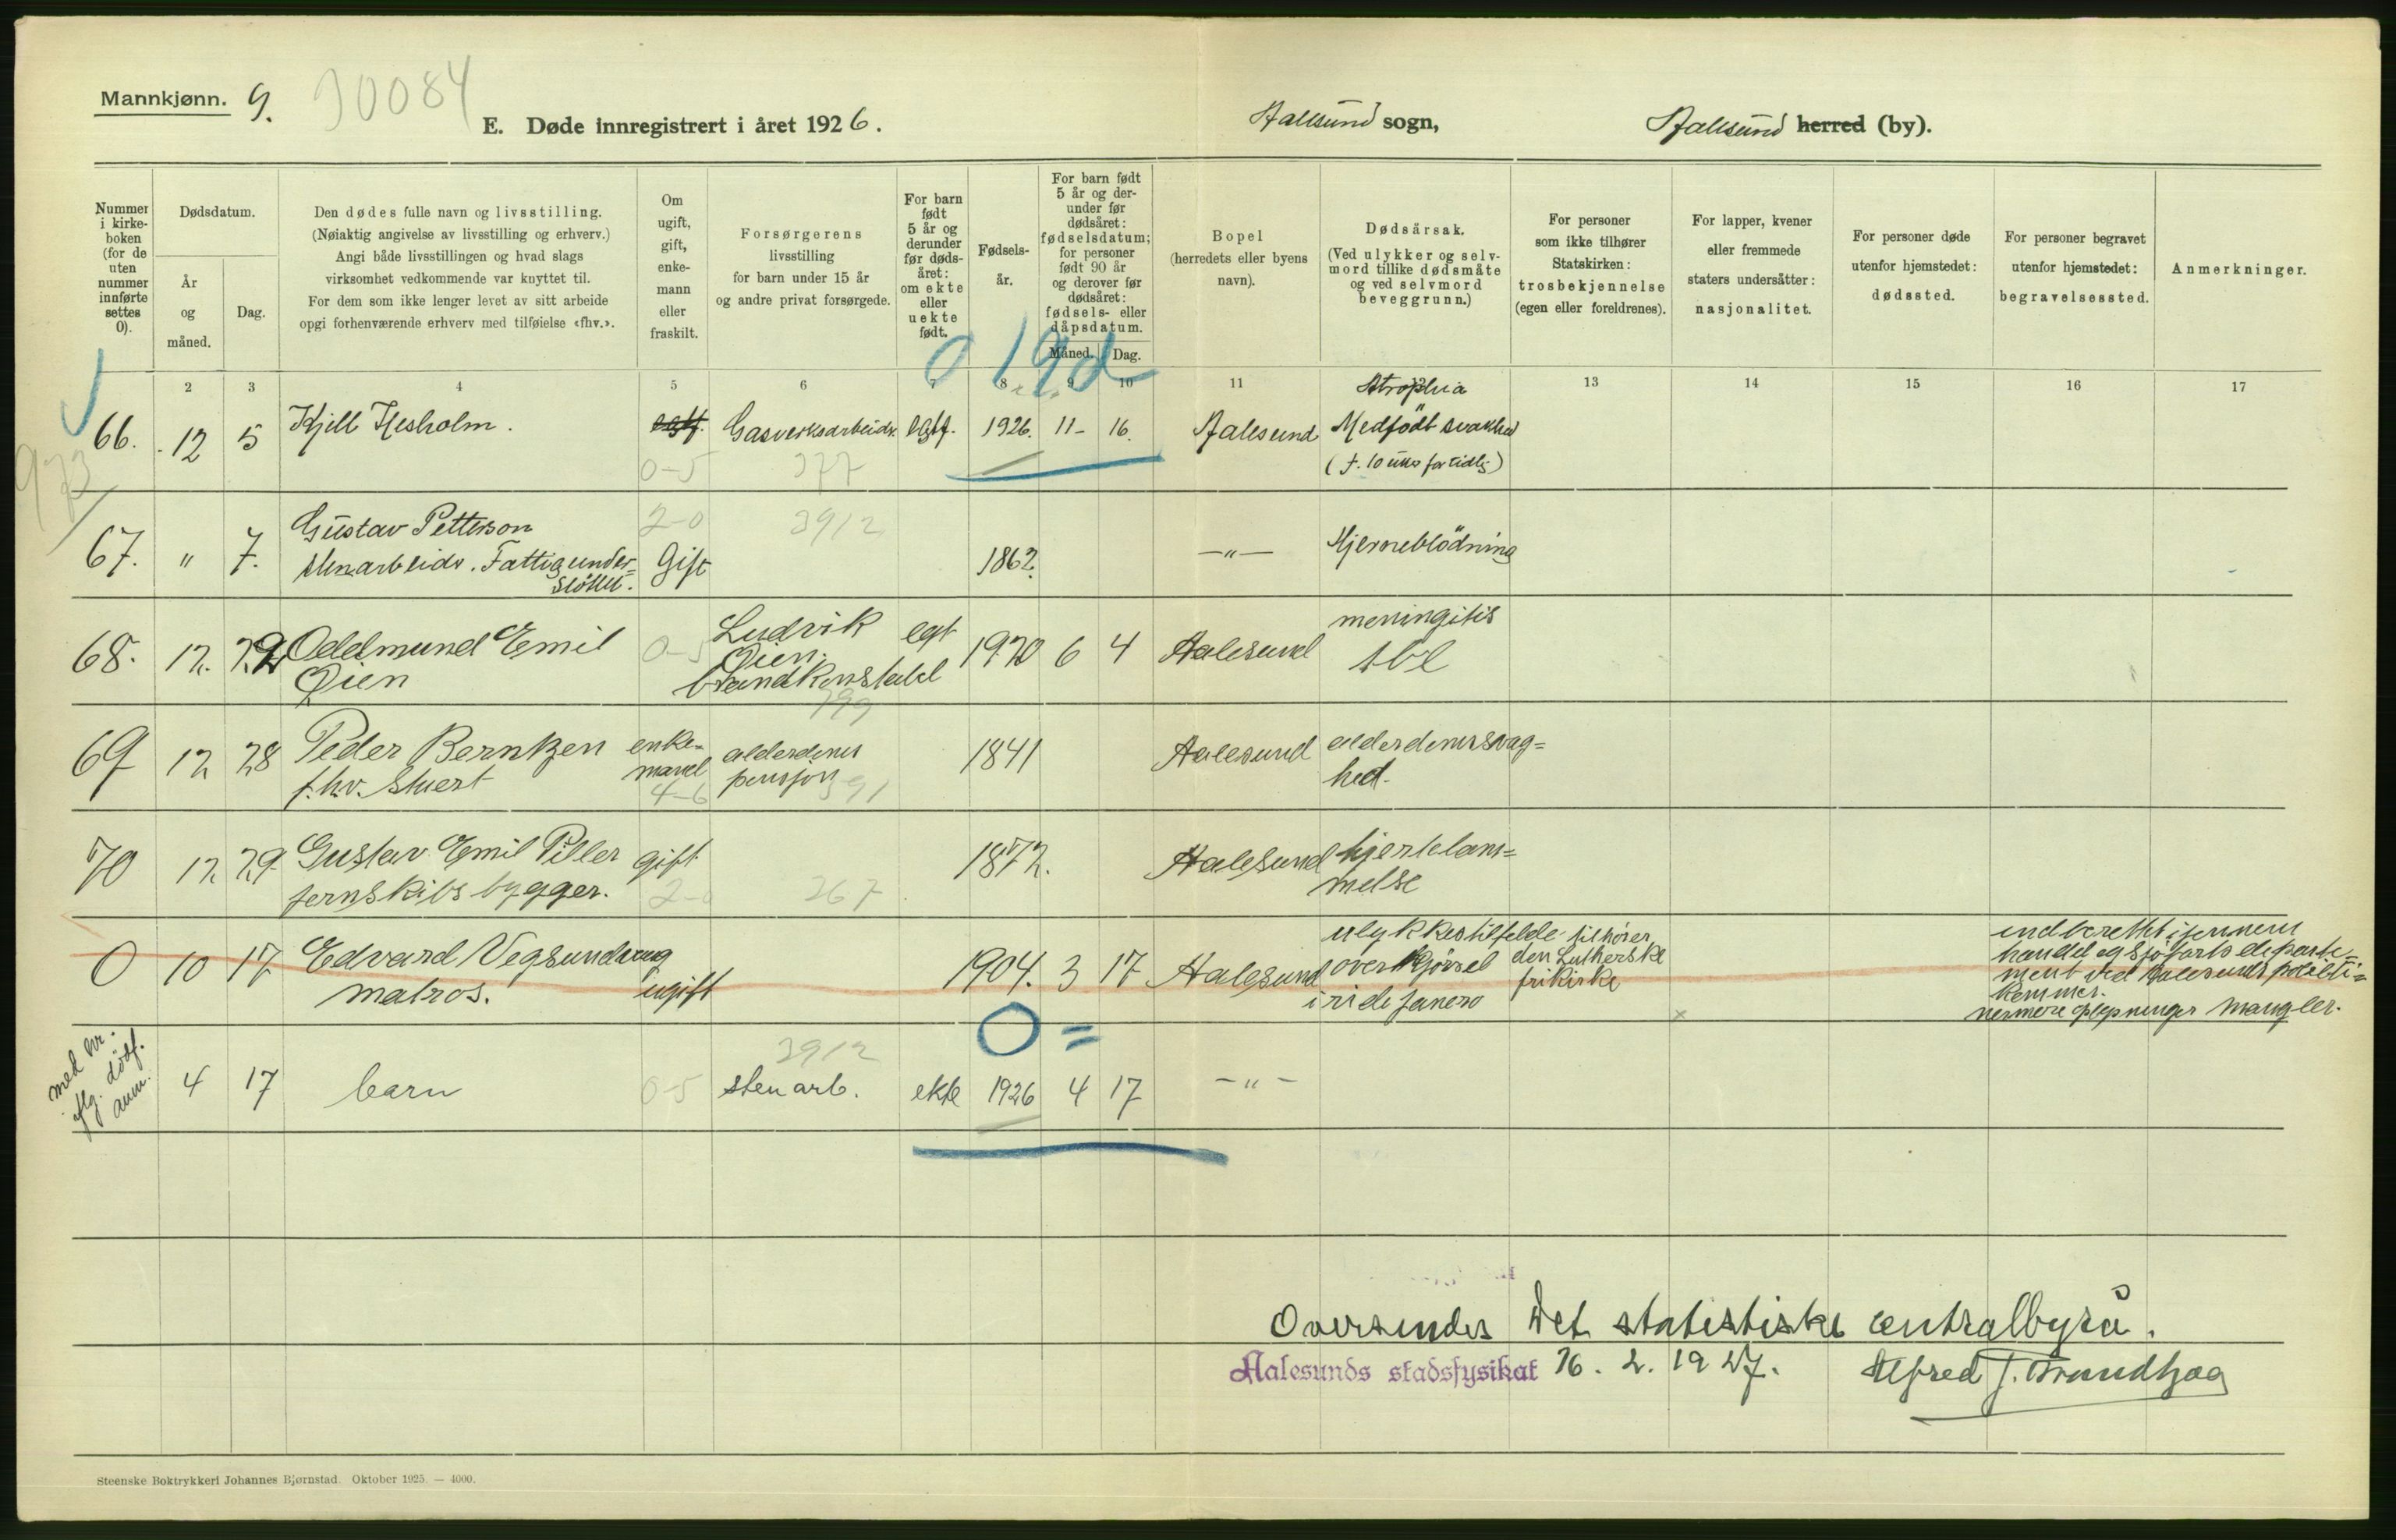 Mannkjønn. 9.
30084
E. Døde innregistrert i året 1926.
Aalesund sogn,
Aalesund herred (by).
Nummer i kirke- boken (for de uten nummer innførte settes 0).
Dødsdatum.
År og måned.
Dag.
Den dødes fulle navn og livsstilling.
(Nøiaktig angivelse av livsstilling og erhverv.)
Angi både livsstillingen og hvad slags
virksomhet vedkommende var knyttet til.
For dem som ikke lenger levet av sitt arbeide
opgi forhenværende erhverv med tilføielse «fhv.».
Om ugift, gift, enke- mann eller fraskilt.
Forsørgerens
livsstilling
for barn under 15 år
og andre privat forsørgede.
For barn født 5 år og derunder før døds- året: om ekte eller uekte født.
Fødsels- år.
For barn født 5 år og der- under før dødsåret: fødselsdatum; for personer født 90 år og derover før dødsåret: fødsels- eller dåpsdatum.
Måned. Dag.
Bopel
(herredets eller byens
navn).
Dødsårsak.
(Ved ulykker og selv-
mord tillike dødsmåte
og ved selvmord
beveggrunn.)
For personer
som ikke tilhører
Statskirken:
trosbekjennelse
(egen eller foreldrenes).
For lapper, kvener
eller fremmede
staters undersåtter:
nasjonalitet.
For personer døde
utenfor hjemstedet:
dødssted.
For personer begravet
utenfor hjemstedet:
begravelsessted.
Anmerkninger.
0 19d
2 3 4 5 6 7 8 9 10 11 13 14 15 16 17
66. 12 5 Kjell Hesholm. egtf. Gasverksarbeider egtf. 1926. 11- 16. Aalesund
Atrophia
Medfödt svakhed
(f. 10 uker for tidlig)
0-5 377
973
67. " 7. Gustav Petterson
Stenarbeider. Fattigunder=
støttet.
2-0 3912
Gift 1862. —"— Hjerneblödning
68. 12. 29 Oddmund Emil
Øien
0-5
Ludvik
Øien.
brandkonstabel
399
egt 1920 6 4 Aalesund meningitis
tbc
69 12 28 Peder Berntzen
f.h.v. Stuert
enke-
mand
4-6
alderdoms
pensjon 391
1841 Aalesund alderdomssvag=
hed.
70 12 29. Gustav Emil Piller
jernskibsbygger.
gift
2-0 267
1872. Aalesund hjertelam=
melse
0 10 17 Edvard Vegsundvaag
matros.
ugift 1904. 3 17 Aalesund
ulykkestilfelde
overkjörsel
i ride Janero
tilhører
den Lutherske
frikirke
indberettet ijennem
handel og sjöfarts departe=
ment ved Aalesunds politi=
kammer.
nermere oplysninger mangler.
0 =
med nr.
flg. dödf.
anm.
4 17 barn 0-5 3912
sten arb. ekte 1926 4 17 —"—
Oversendes Det statistiske centralbyrå.
Aalesunds stadsfysikat 16. 2. 1927. Alfred J.
Steenske Boktrykkeri Johannes Bjørnstad. Oktober 1925. — 4000.